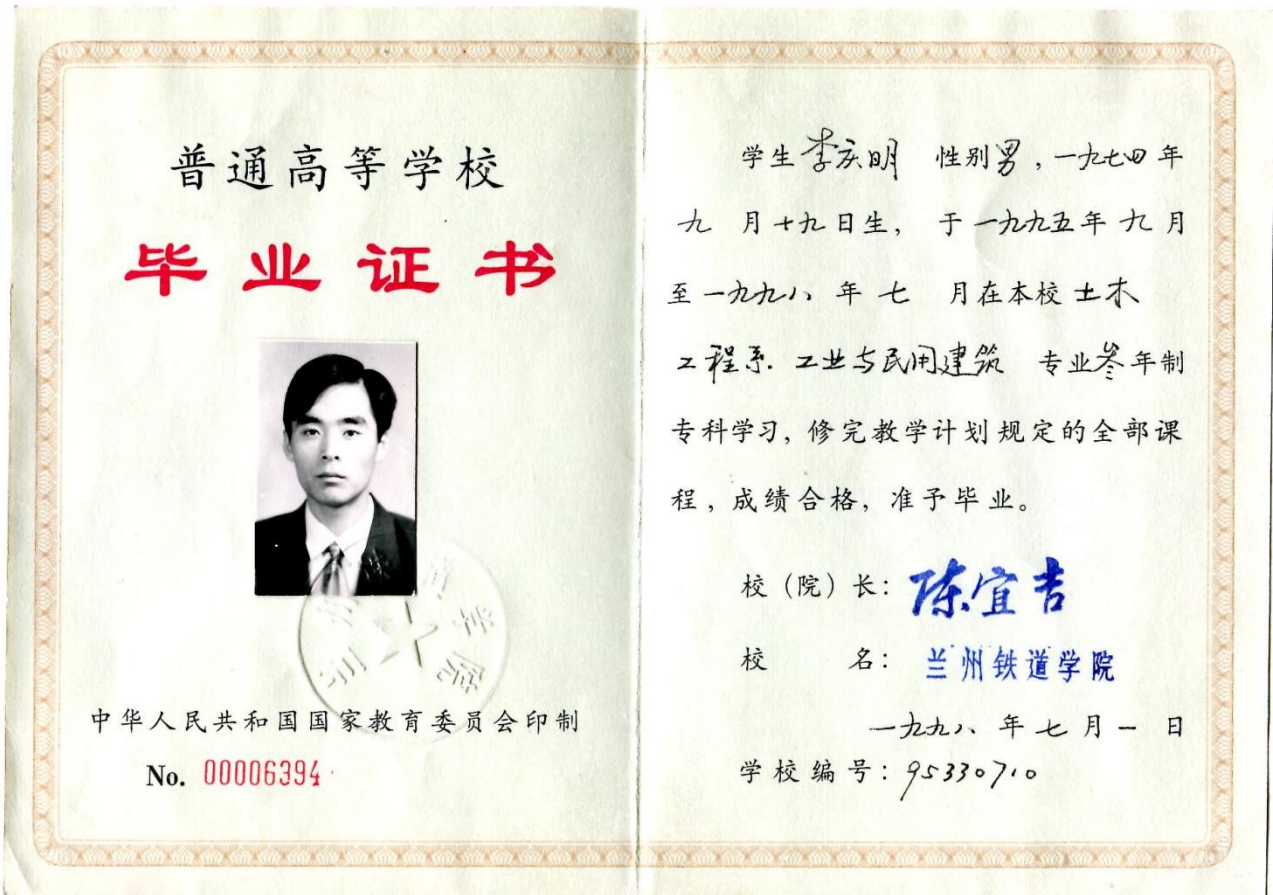 普通高等学校
毕业证书
学院
中华人民共和国国家教育委员会印制
No. 00006394
学生李庆明 性别男，一九七四年
九 月十九日生，于一九九五年九月
至一九九八 年 七 月在本校土木
工程系. 工业与民用建筑 专业叁年制
专科学习，修完教学计划规定的全部课
程，成绩合格，准予毕业。
校（院）长：陈宜吉
校 名：兰州铁道学院
一九九八 年 七 月 一 日
学校编号：95330710